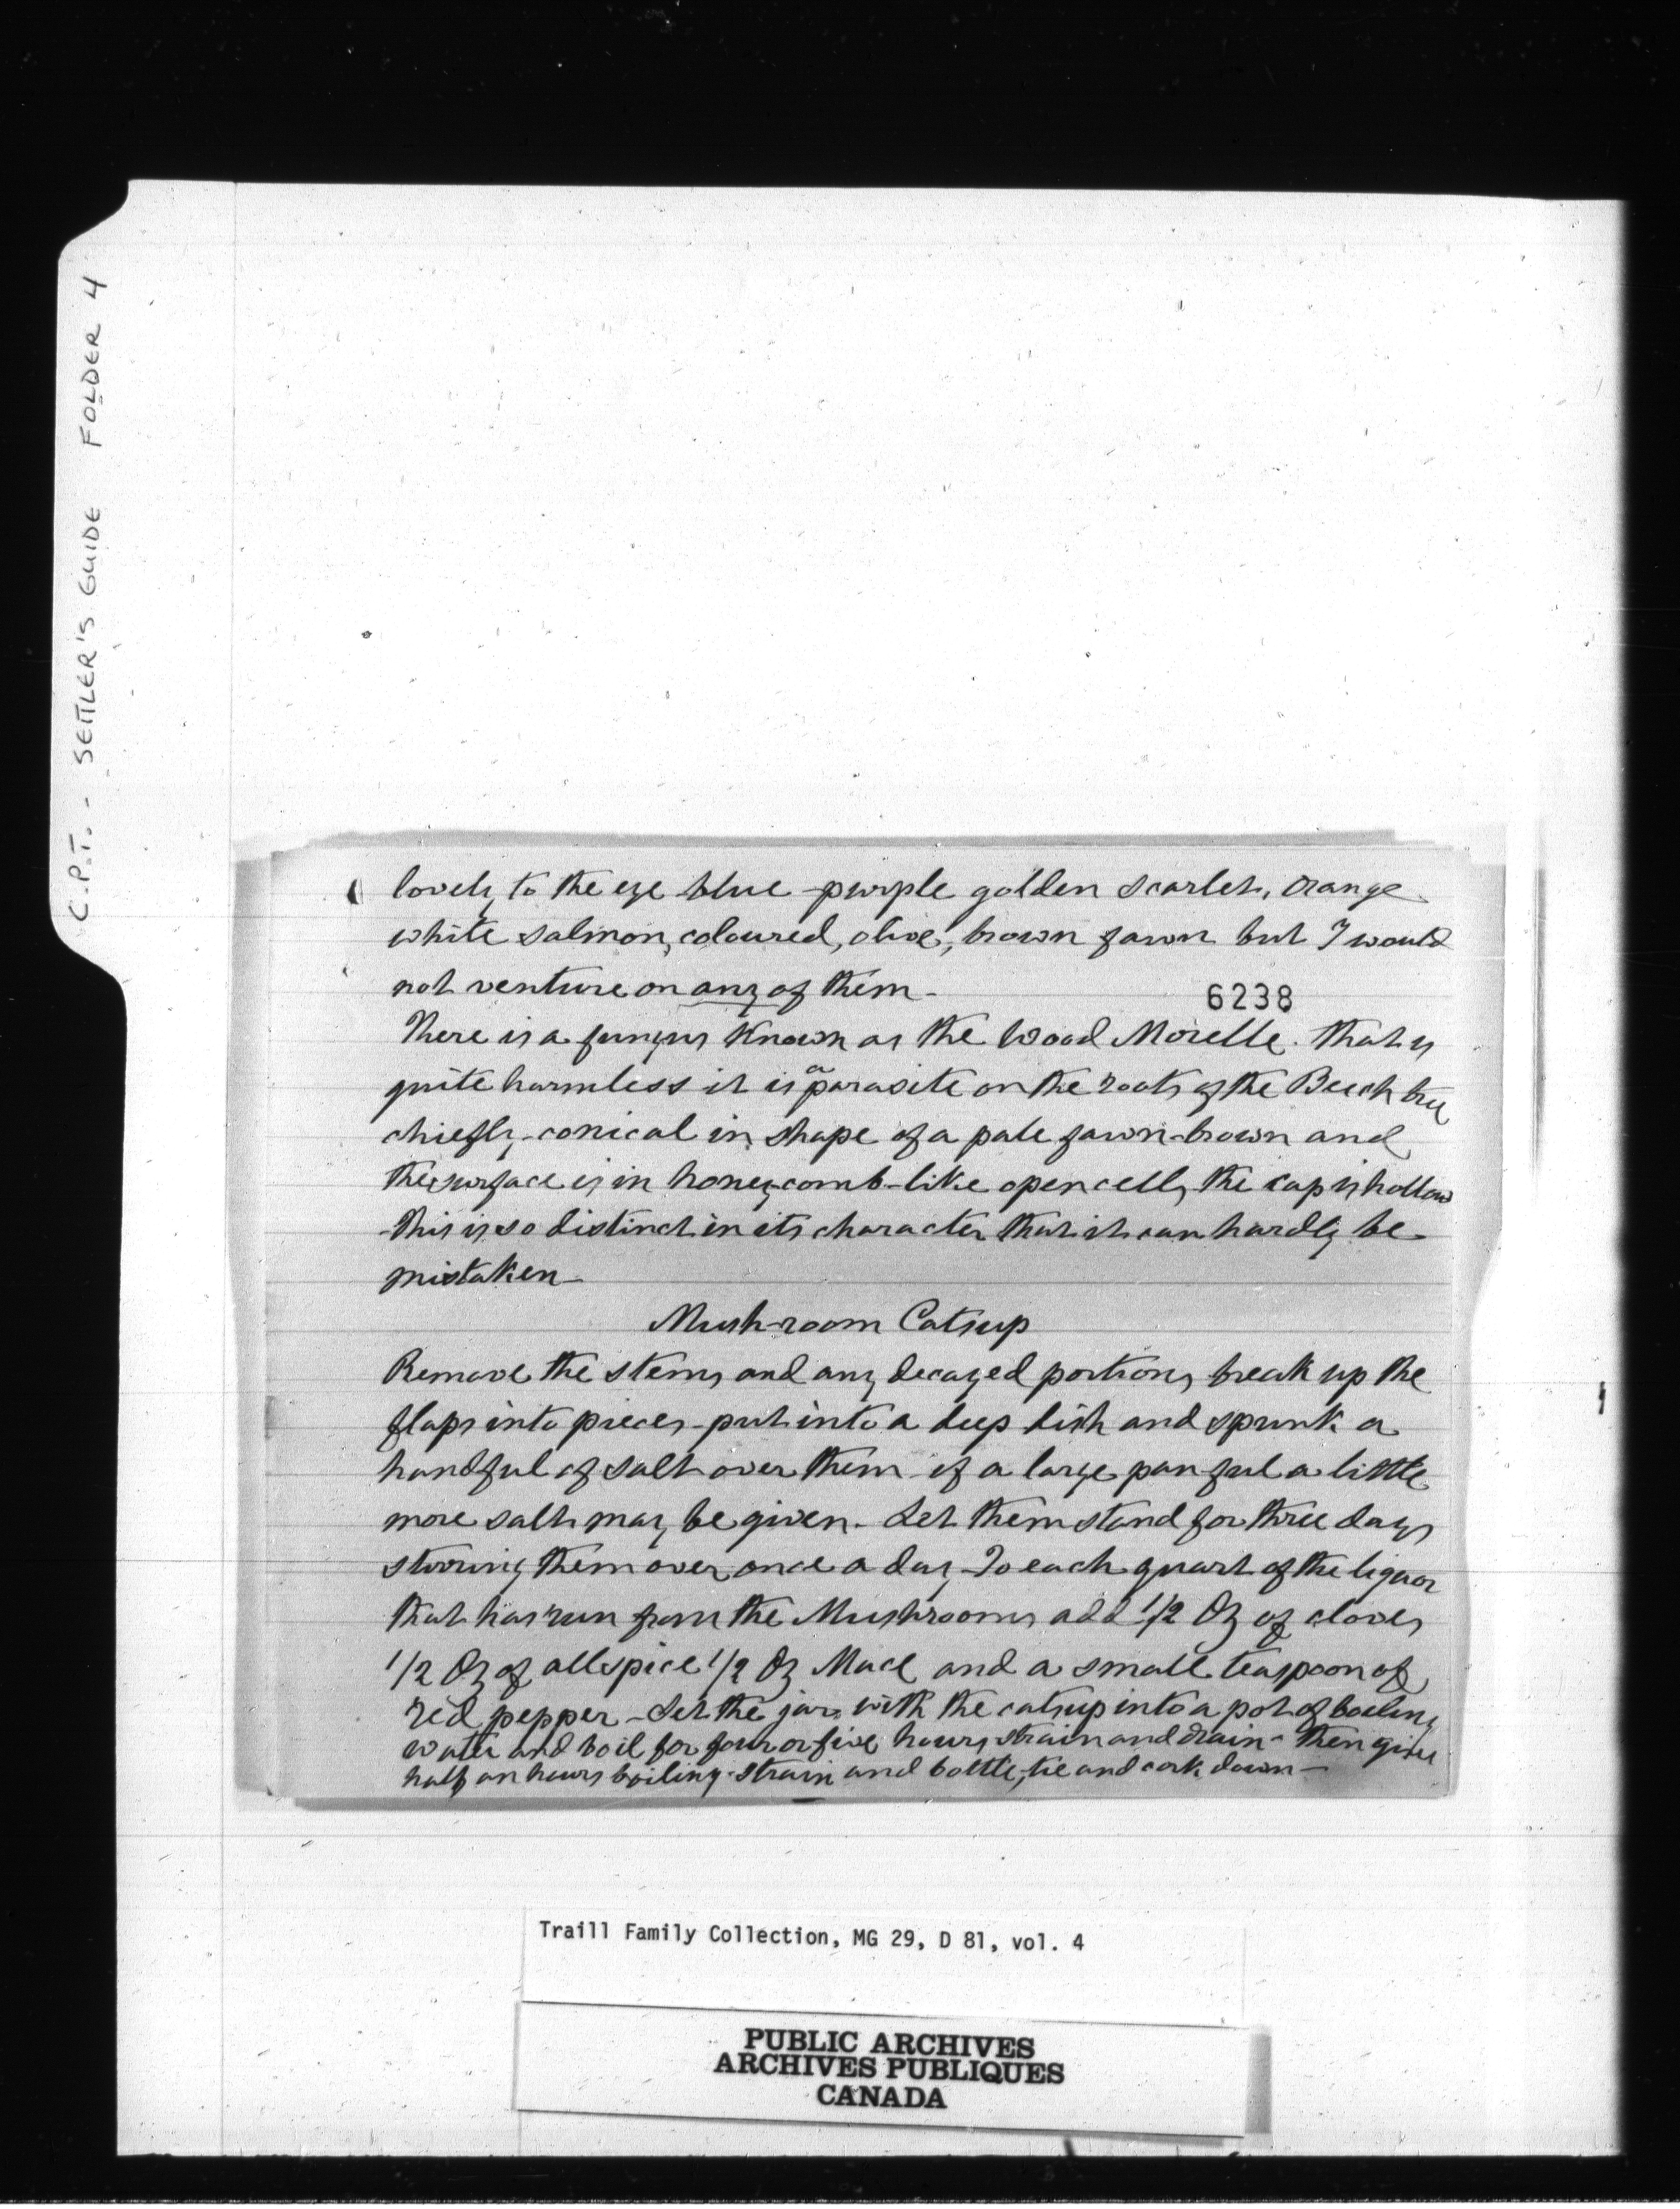 C.P.T. - SETTLER'S GUIDE FOLDER 4
lovely to the eye blue - purple golden scarlet, orange
white salmon, coloured, olive, brown fawn but I would
not venture on any of them -
6238
There is a fungus known as the Wood Morelle. that is
quite harmless it is a parasite on the roots of the Beech tree
chiefly - conical in shape of a pale fawn-brown and
the surface is in honey-comb-like open cells, the cap is hollow
This is so distinct in its character that it can hardly be
mistaken -
Mush-room Catsup
Remove the stems and any decayed portions, break up the
flaps into pieces - put into a deep dish and sprink a
handful of salt over them - if a large pan ful a little
more salt may be given. Let them stand for three days
stirring them over once a day - To each quart of the liquor
that has run from the Mushrooms add 1/2 Oz of cloves,
1/2 Oz of allspice 1/2 Oz Mace and a small teaspoon of
red pepper - Set the jar with the catsup into a pot of boiling
water and boil for four or five hours, strain and drain - then give
half an hours boiling - strain and bottle, tie and cork down -
Traill Family Collection, MG 29, D 81, vol. 4
PUBLIC ARCHIVES
ARCHIVES PUBLIQUES
CANADA